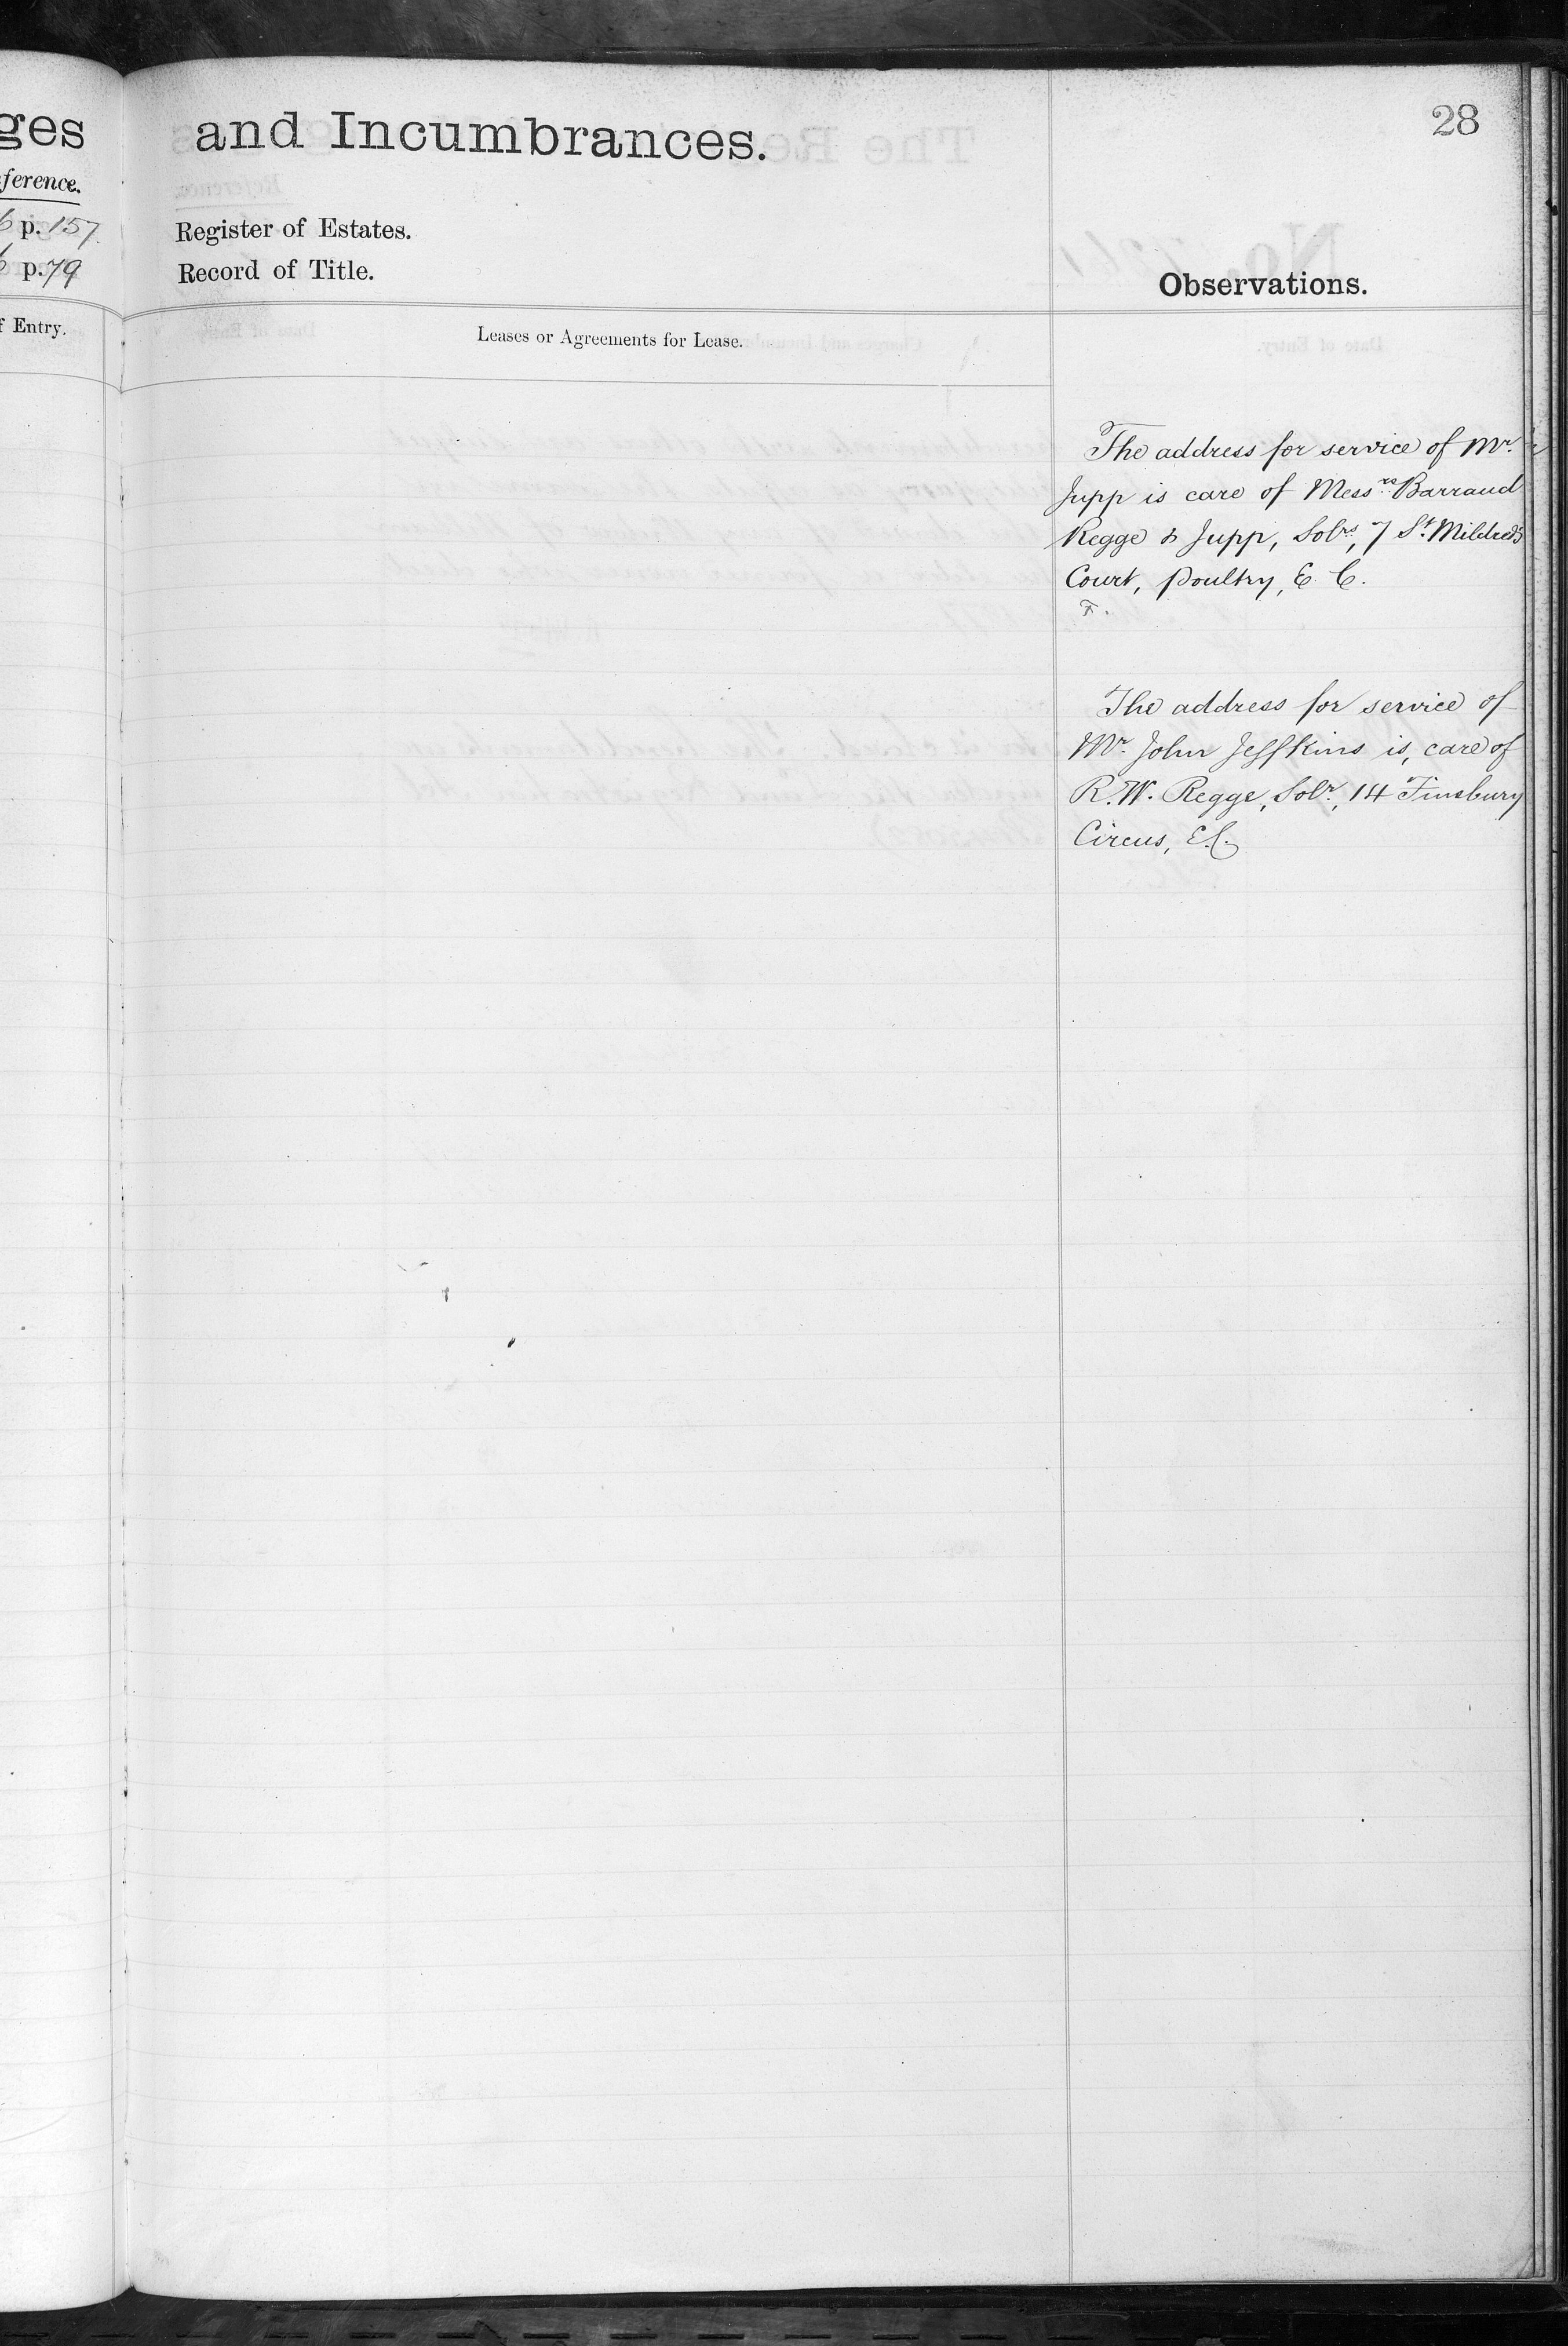 28
ges and Incumbrances.
ference.
p. 157 Register of Estates.
p. 79 Record of Title.
Observations.
Entry.
Leases or Agreements for Lease.
The address for service of Mr.
Jupp is care of Messrs Barraud
Regge & Jupp, Solrs, 7 St. Mildred's
Court, Poultry, E. C.
The address for service of
Mr. John Jeffkins is, care of
R. W. Regge, Solr., 14 Finsbury
Circus, E.C.